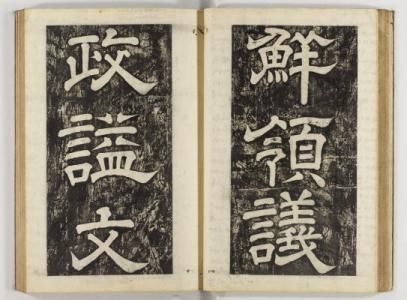 鮮領議
政諡文